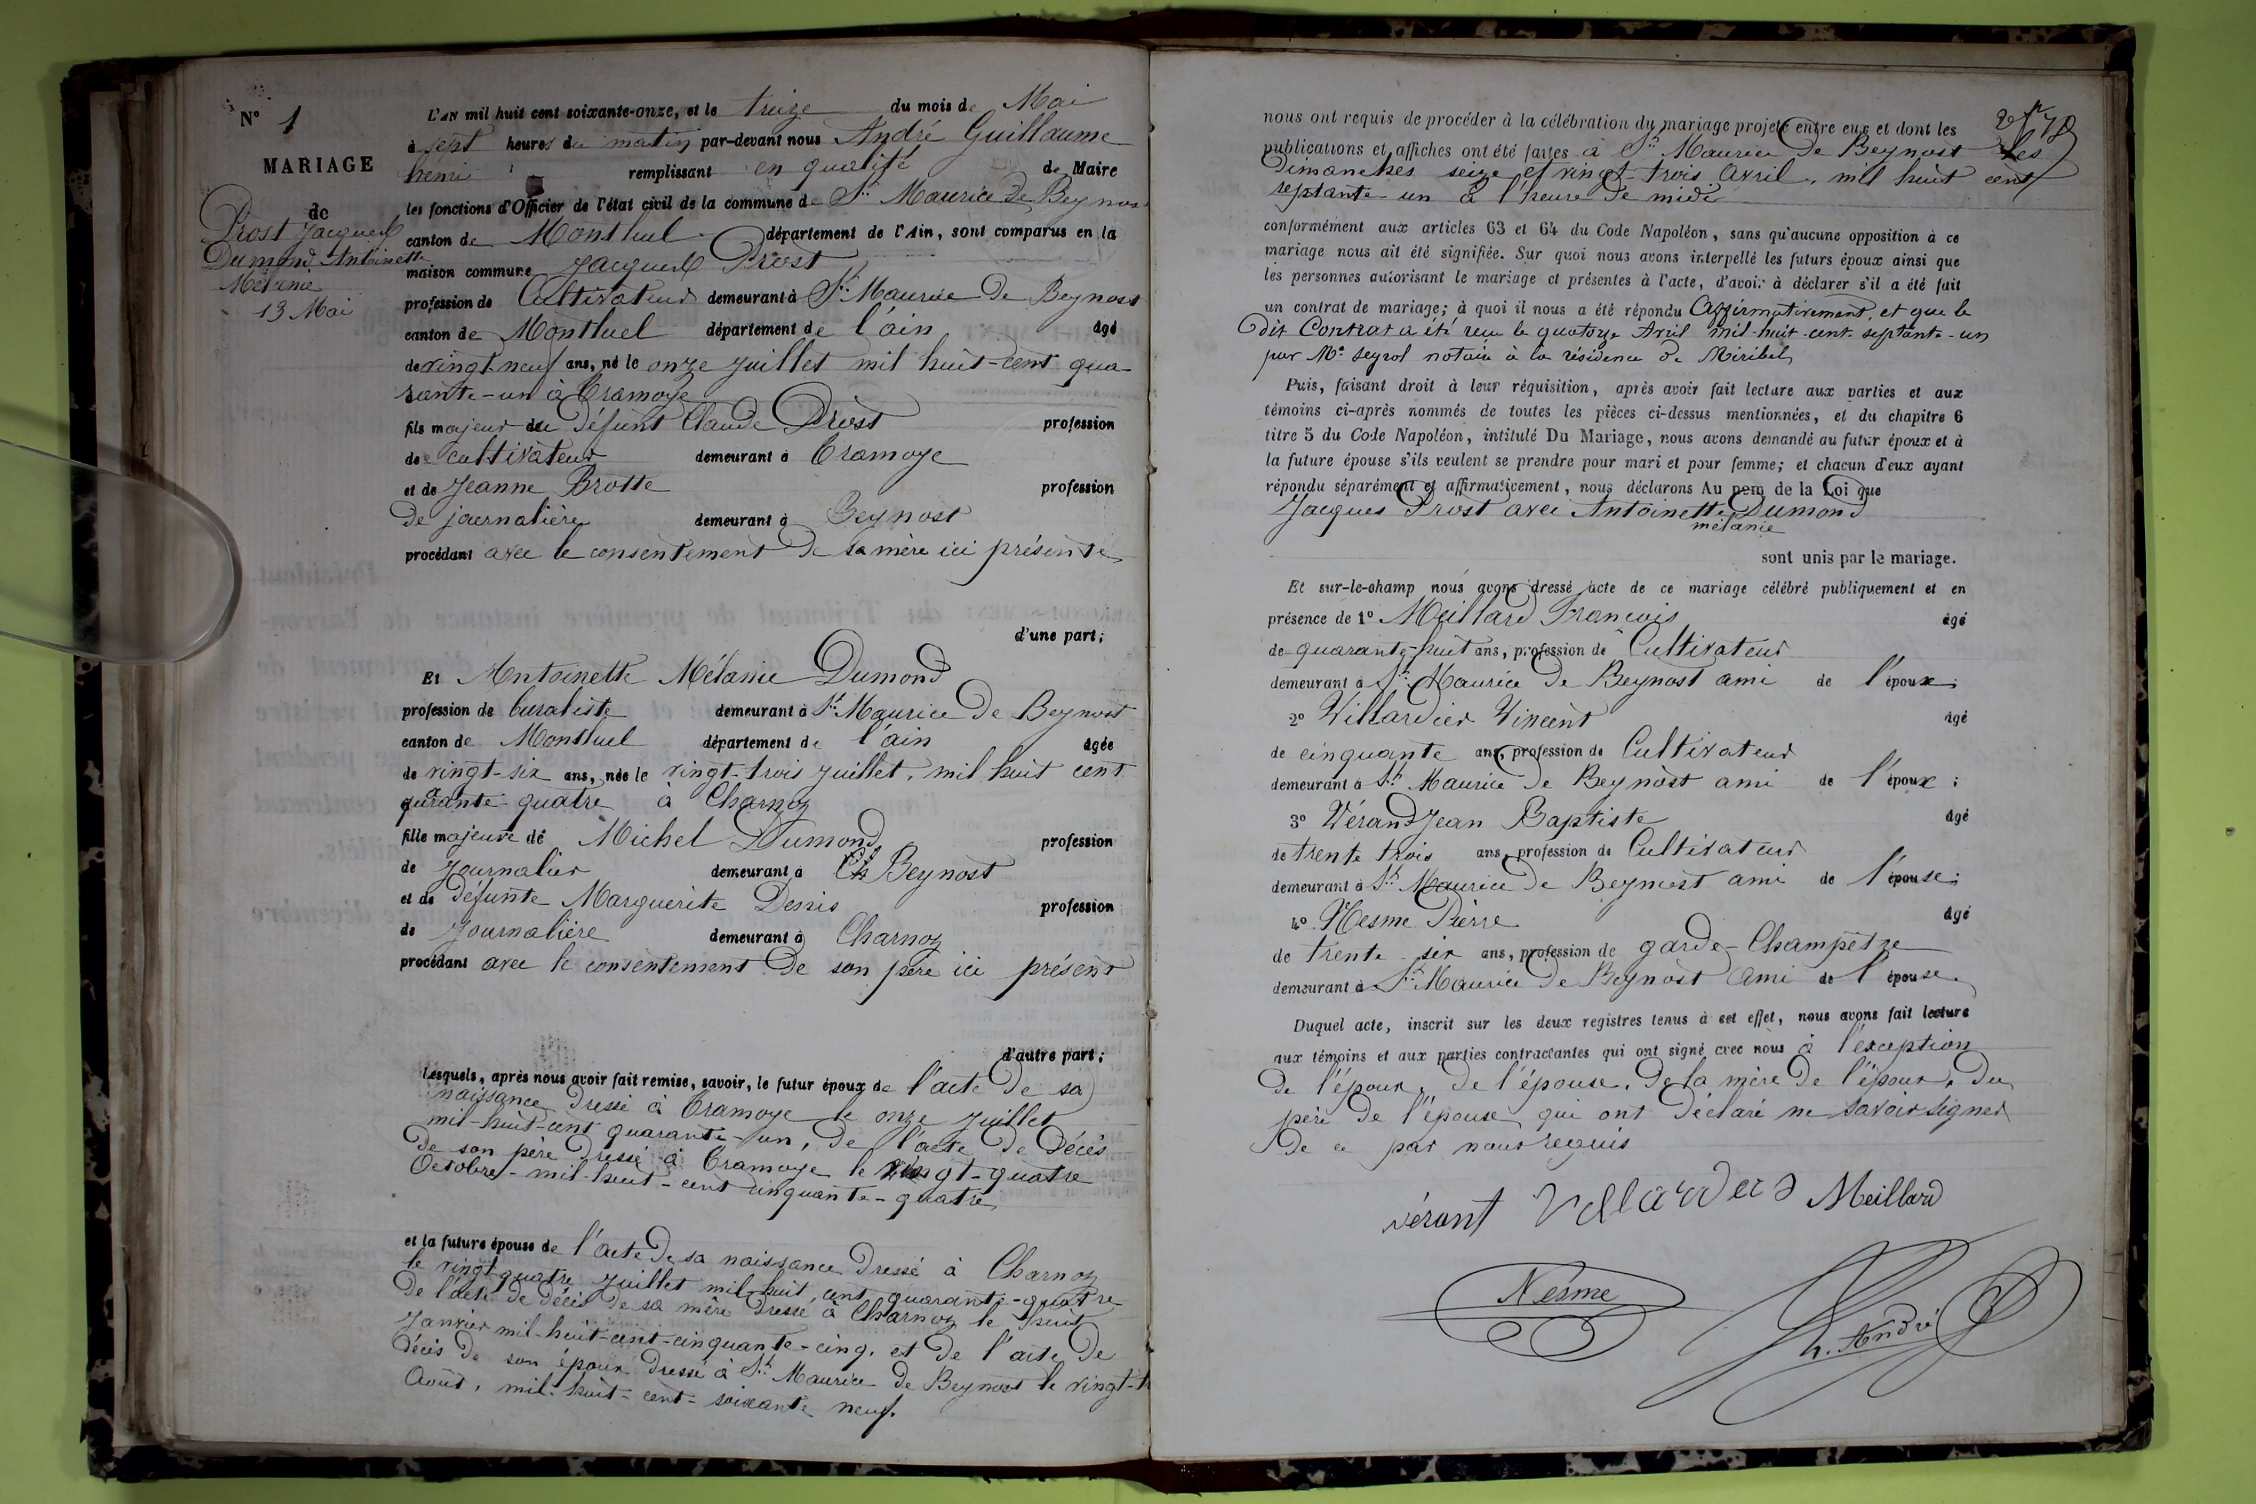 N° 1
MARIAGE
de
Prost Jacques
Dumond Antoinette
Mélanie
13 Mai
L'AN mil huit cent soixante-onze, et le treize du mois de Mai
à sept heures du matin par-devant nous André Guillaume
henri remplissant en qualité de Maire
les fonctions d'Officier de l'état civil de la commune de St. Maurice de Beynost
canton de Montluel département de l'Ain, sont comparus en la
maison commune Jacques Prost
profession de Cultivateur demeurant à St. Maurice de Beynost
canton de Montluel département de l'ain âgé
de vingt-neuf ans, né le onze juillet mil huit-cent qua
rante-un à Cramoye
fils majeur de défunt Claude Prost profession
de cultivateur demeurant à Cramoye
et de Jeanne Brotte profession
de journalière demeurant à Beynost
procédant avec le consentement de sa mère ici présente
d'une part;
Et Antoinette Mélanie Dumond
profession de buraliste demeurant à St. Maurice de Beynost
canton de Montluel département de l'ain âgée
de vingt-six ans, née le vingt-trois juillet, mil huit cent
quarante-quatre à Charnoz
fille majeure de Michel Dumond profession
de Journalier demeurant à Beynost
et de défunte Marguerite Denis profession
de Journalière demeurant à Charnoz
procédant avec le consentement de son père ici présent
d'autre part;
Lesquels, après nous avoir fait remise, savoir, le futur époux de l'acte de sa
naissance dressé à Cramoye le onze juillet
mil-huit-cent quarante-un, de l'acte de décès
de son père dressé à Cramoye le vingt-quatre
Octobre-mil-huit-cent cinquante-quatre
et la future épouse de l'acte de sa naissance dressé à Charnoz
le vingt quatre Juillet mil-huit cent quarante-quatre
De l'acte de décès de sa mère dressé à Charnoz le huit
Janvier mil-huit-cent-cinquante-cinq. et de l'acte de
décès de son époux dressé à St. Maurice de Beynost le vingt-
Août, mil-huit-cent-soixante neuf.
nous ont requis de procéder à la célébration du mariage projeté entre eux et dont les
publications et affiches ont été faites à St. Maurice de Beynost les
Dimanches seize et vingt-trois avril, mil huit cent
septante-un à l'heure de midi
conformément aux articles 63 et 64 du Code Napoléon, sans qu'aucune opposition à ce
mariage nous ait été signifiée. Sur quoi nous avons interpellé les futurs époux ainsi que
les personnes autorisant le mariage et présentes à l'acte, d'avoir à déclarer s'il a été fait
un contrat de mariage; à quoi il nous a été répondu Affirmativement, et que le
dit Contrat a été reçu le quatorze Avril mil-huit-cent-septante-un
par Me. Seyrol notaire à la résidence de Miribel
Puis, faisant droit à leur réquisition, après avoir fait lecture aux parties et aux
témoins ci-après nommés de toutes les pièces ci-dessus mentionnées, et du chapitre 6
titre 5 du Code Napoléon, intitulé Du Mariage, nous avons demandé au futur époux et à
la future épouse s'ils veulent se prendre pour mari et pour femme; et chacun d'eux ayant
répondu séparément et affirmativement, nous déclarons Au nom de la Loi que
Jacques Prost avec Antoinette Dumond
mélanie
sont unis par le mariage.
Et sur-le-champ nous avons dressé acte de ce mariage célébré publiquement et en
présence de 1° Meillard François âgé
de quarante-huit ans, profession de Cultivateur
demeurant à St. Maurice de Beynost ami de l'époux;
2° Villardier Vincent âgé
de cinquante ans, profession de Cultivateur
demeurant à St. Maurice de Beynost ami de l'époux;
3° Vérand Jean Baptiste âgé
de trente trois ans, profession de Cultivateur
demeurant à St. Maurice de Beynost ami de l'épouse;
4° Nesme Pierre âgé
de trente-six ans, profession de garde-Champêtre
demeurant à St. Maurice de Beynost ami de l'épouse.
Duquel acte, inscrit sur les deux registres tenus à cet effet, nous avons fait lecture
aux témoins et aux parties contractantes qui ont signé avec nous à l'exception
de l'époux, de l'épouse, de la mère de l'époux, du
père de l'épouse qui ont déclaré ne savoir signer
de ce par nous requis
vérant Villardier Meillard
Nesme
h. André